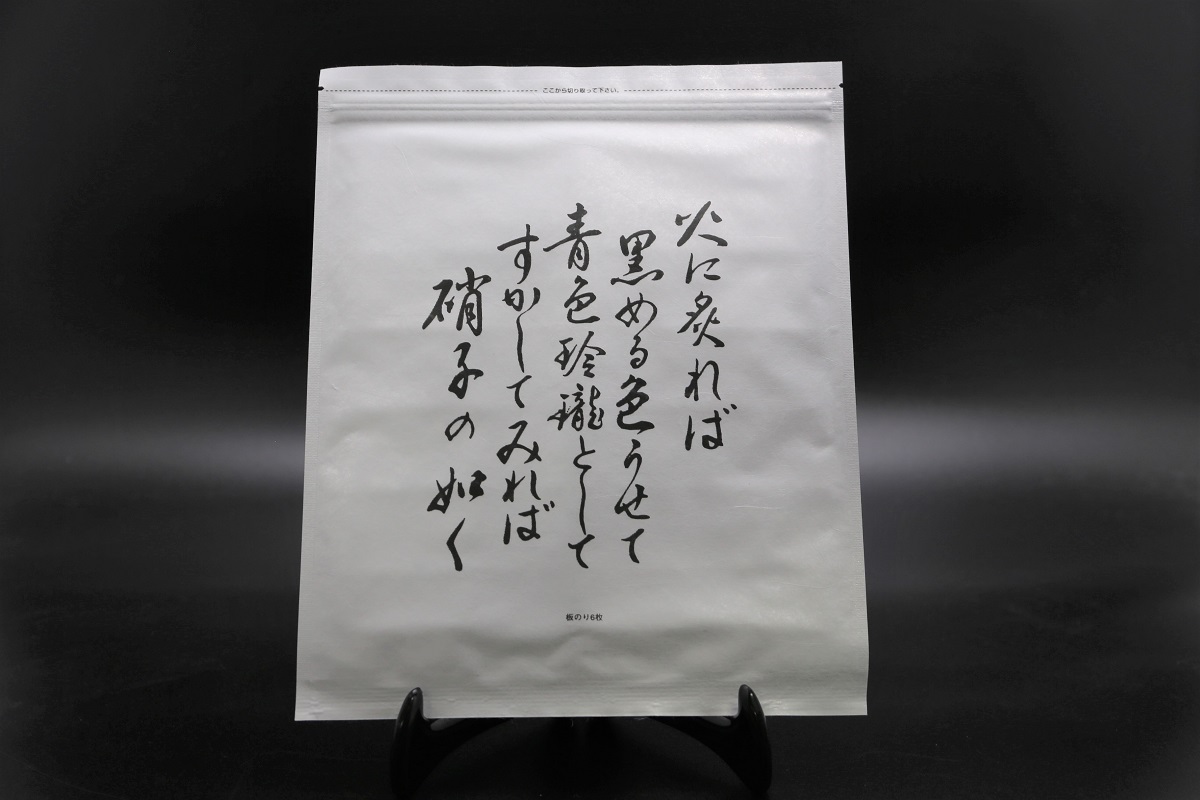 ここから切り取って下さい。
火に炙れば
黒める色うせて
青色玲瓏として
すかしてみれば
硝子の如く
板のり6枚